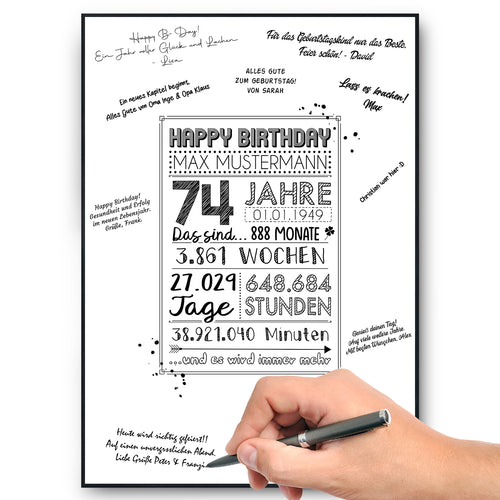 Happy B-Day!
Ein Jahr voller Glück und Lachen
- Lisa
Für das Geburtstagskind nur das Beste.
Feier schön! - David
ALLES GUTE
ZUM GEBURTSTAG!
VON SARAH
Ein neues Kapitel beginnt,
Alles Gute von Oma Inge & Opa Klaus
Lass es krachen!
Max
HAPPY BIRTHDAY
MAX MUSTERMANN
74 JAHRE
01.01.1949
Das sind... 888 MONATE
3.861 WOCHEN
27.029 Tage
648.684 STUNDEN
38.921.040 Minuten
...und es wird immer mehr
Christian war hier :D
Happy Birthday!
Gesundheit und Erfolg
im neuen Lebensjahr.
Grüße, Frank.
Genieß deinen Tag!
Auf viele weitere Jahre.
Mit besten Wünschen, Alex
Heute wird richtig gefeiert!!
Auf einen unvergesslichen Abend.
Liebe Grüße Peter & Franzi